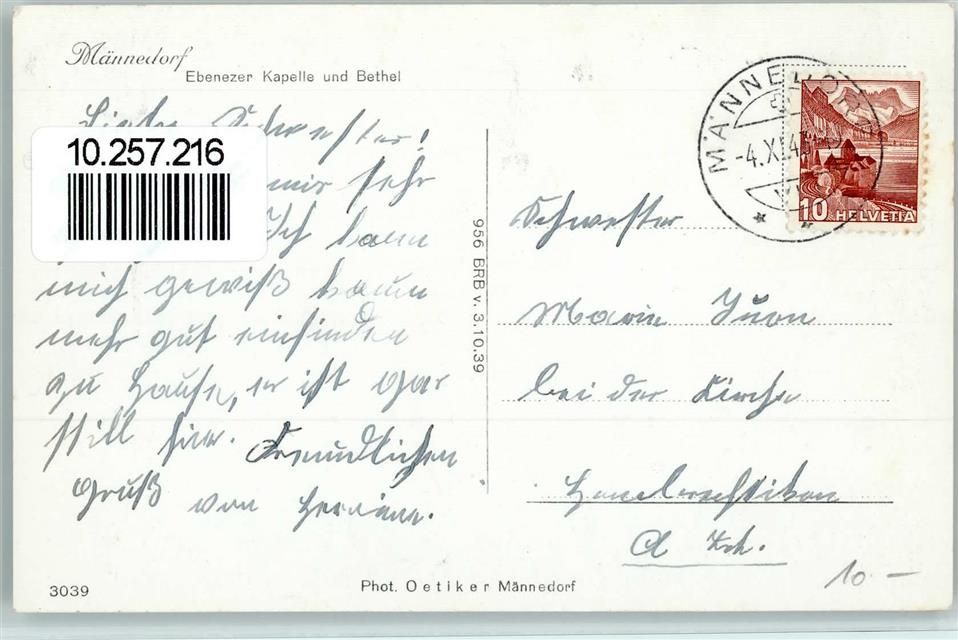 Männedorf
Ebenezer Kapelle und Bethel
Liebe Schwester!
10.257.216
mir sehr
Ich kann
mich gewiß kaum
mehr gut einfinden
zu Hause, er ist gar
still hier. Freundlichen
Gruß von
MÄNNEDORF
-4.XI.43
10 HELVETIA
956 BRB v. 3.10.39
Schwester
Marie Juon
bei der Kirche
Hombrechtikon
Zch.
10.-
3039
Phot. Oetiker Männedorf